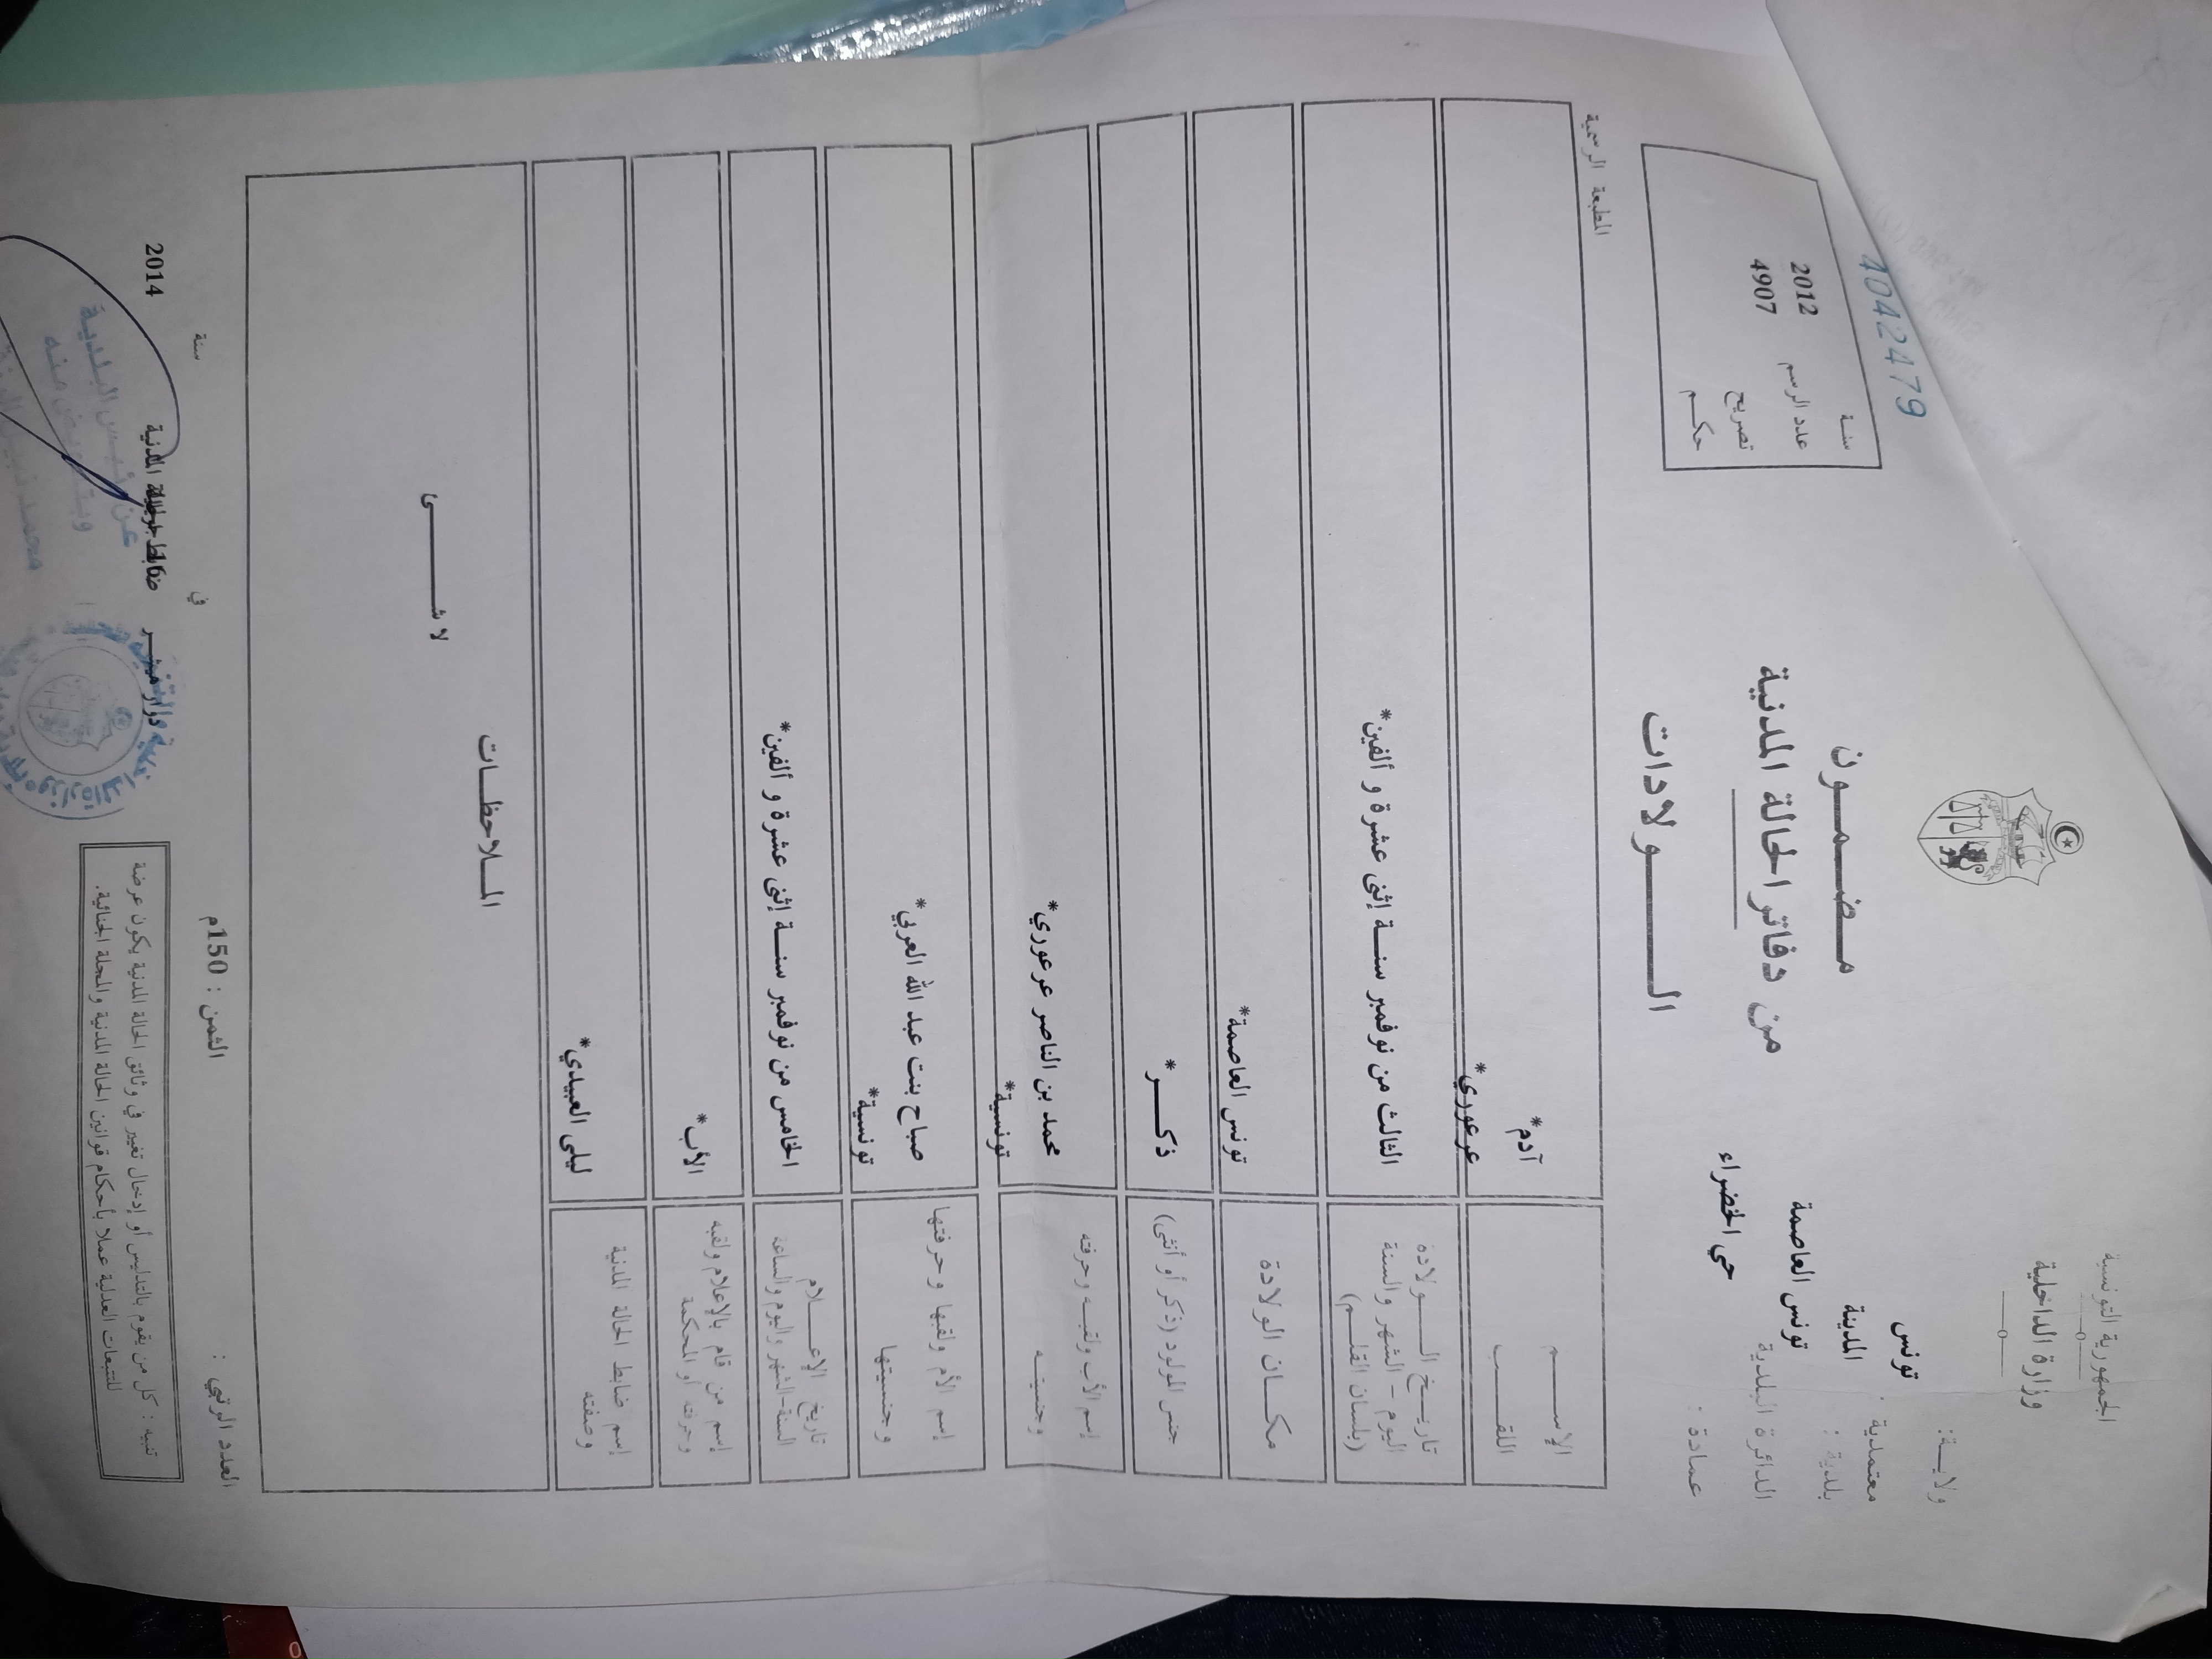 الجمهورية التونسية
وزارة الداخلية
ولاية: تونس
معتمدية : المدينة
بلدية : تونس العاصمة
الدائرة البلدية حي الخضراء
عمادة :
مضمون
من دفاتر الحالة المدنية
الولادات
4042479
سنة 2012
عدد الرسم 4907
تصريح
حكم
المطبعة الرسمية
الإسم آدم*
اللقب عرعوري*
تاريخ الولادة
اليوم - الشهر والسنة
(بلسان القلم)
الثالث من نوفمبر سنة إثني عشرة و ألفين*
مكان الولادة تونس العاصمة*
جنس المولود (ذكر أو أنثى) ذكر*
إسم الأب ولقبه وحرفته
وجنسيته
محمد بن الناصر عرعوري*
تونسية*
إسم الأم ولقبها وحرفتها
وجنسيتها
صباح بنت عبد الله العربي*
تونسية*
تاريخ الإعلام
السنة-الشهر واليوم والساعة
الخامس من نوفمبر سنة إثني عشرة و ألفين*
إسم من قام بالإعلام ولقبه
وحرفته أو المحكمة
الأب*
إسم ضابط الحالة المدنية
وصفته
ليلى العبيدي*
الملاحظات
لا شئ
العدد الرتبي :
الثمن : 150م
في
سنة
2014
ضابط الحالة المدنية
عن رئيس البلدية
وبتفويض منه
تنبيه : كل من يقوم بالتدليس أو إدخال تغيير في وثائق الحالة المدنية يكون عرضة
للتتبعات العدلية عملا بأحكام قوانين الحالة المدنية والمجلة الجنائية.